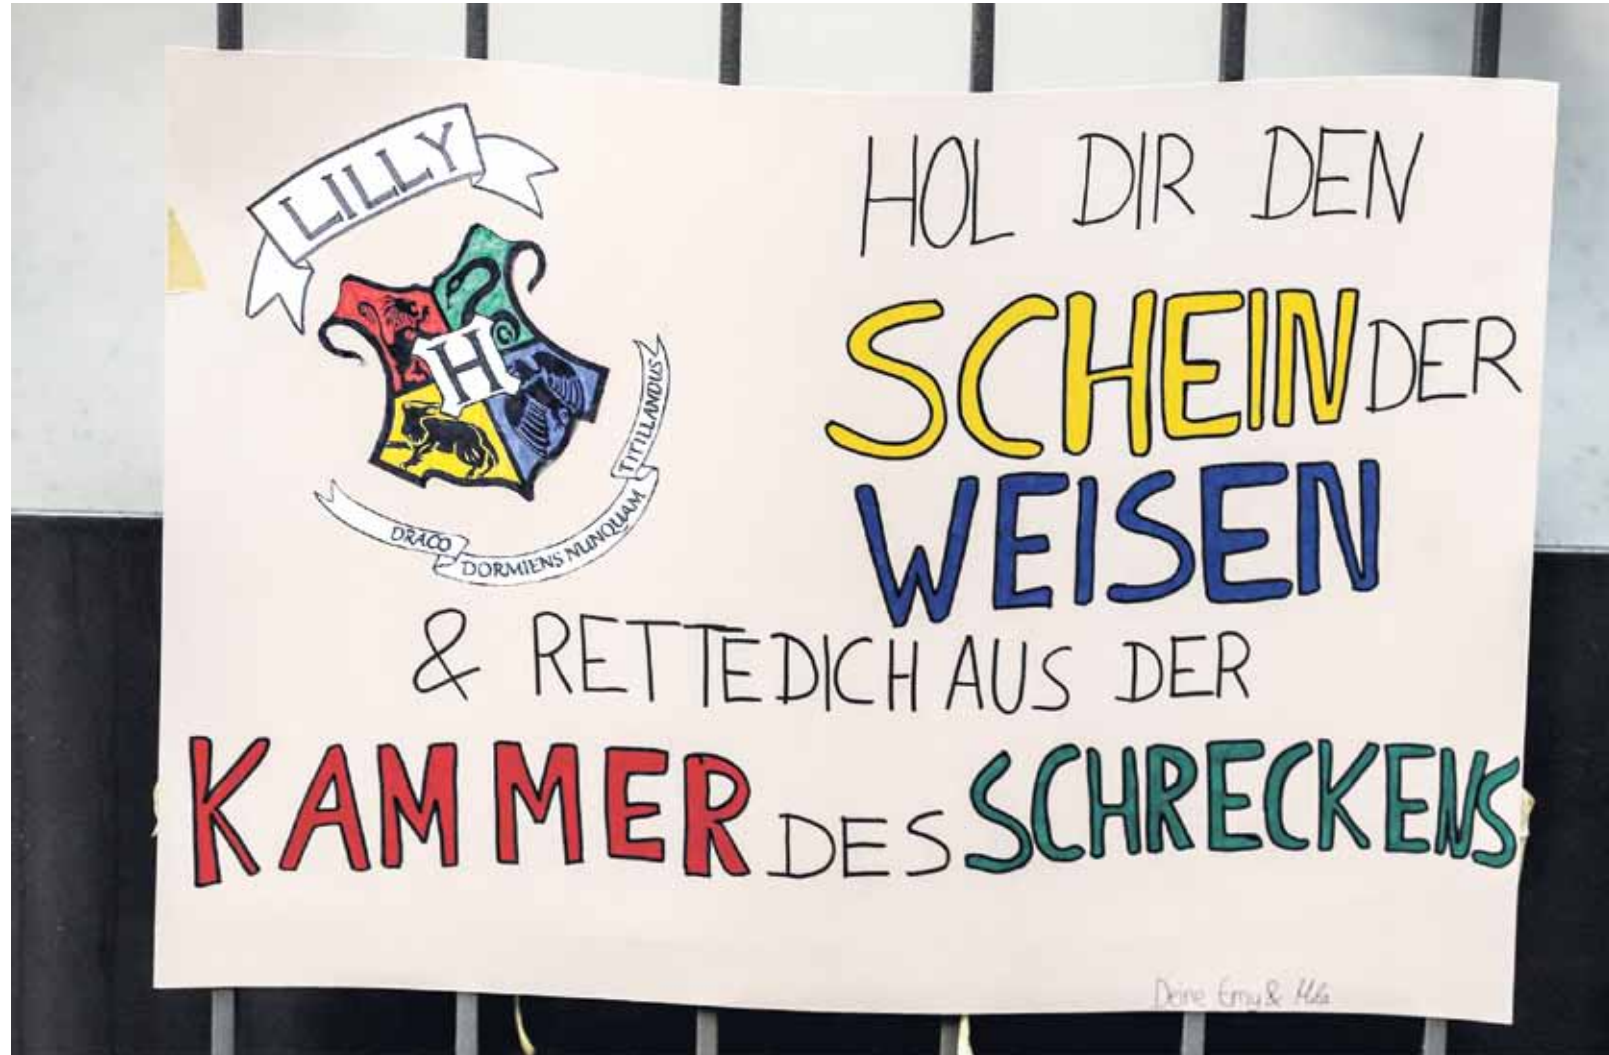 LILLY
H
DRACO
DORMIENS NUNQUAM
TITILLANDUS
HOL DIR DEN
SCHEIN DER
WEISEN
& RETTE DICH AUS DER
KAMMER DES SCHRECKENS
Deine Emy & Mila